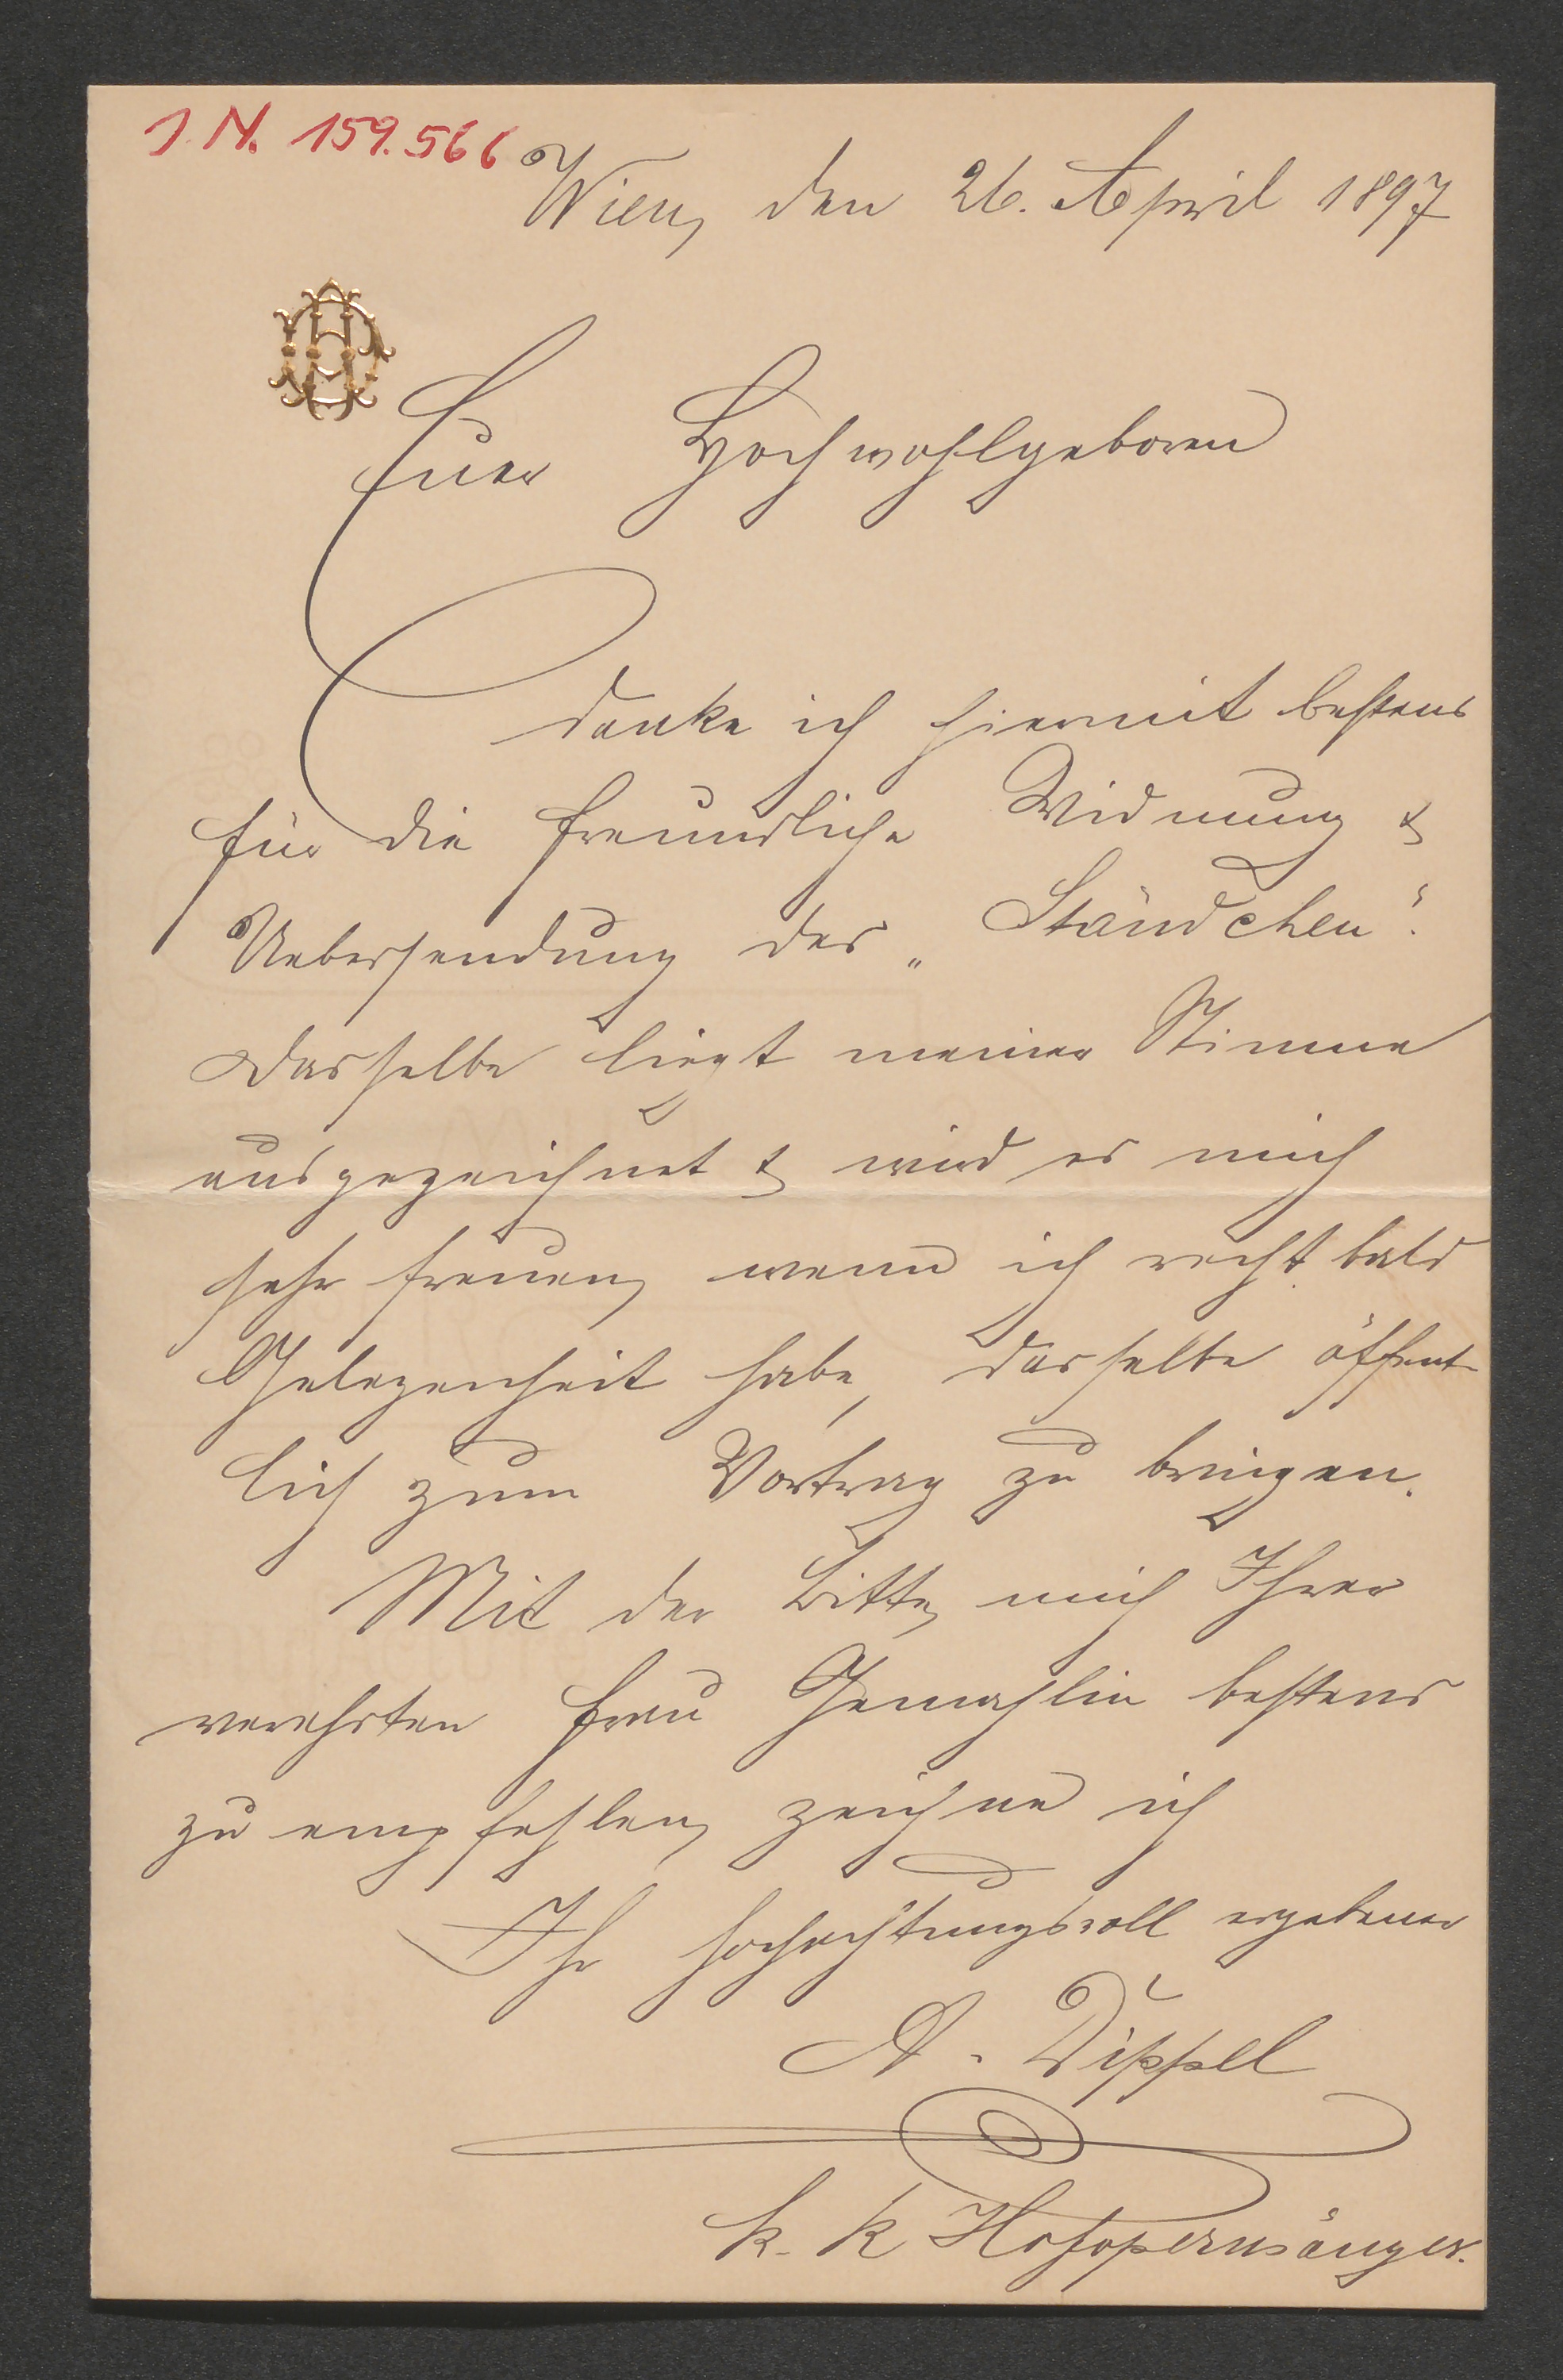 J. N. 159.566
Wien, den 26. April 1897
Euer Hochwohlgeboren
danke ich hiermit bestens
für die freundliche Widmung &
Uebersendung des „Ständchen“.
Dasselbe liegt meiner Stimme
ausgezeichnet & wird es mich
sehr freuen, wenn ich recht bald
Gelegenheit habe, dasselbe öffent-
lich zum Vortrag zu bringen.
Mit der Bitte, mich Ihrer
verehrten Frau Gemahlin bestens
zu empfehlen, zeichne ich
Ihr hochachtungsvoll ergebener
A. Dippel
k. k Hofopernsänger.